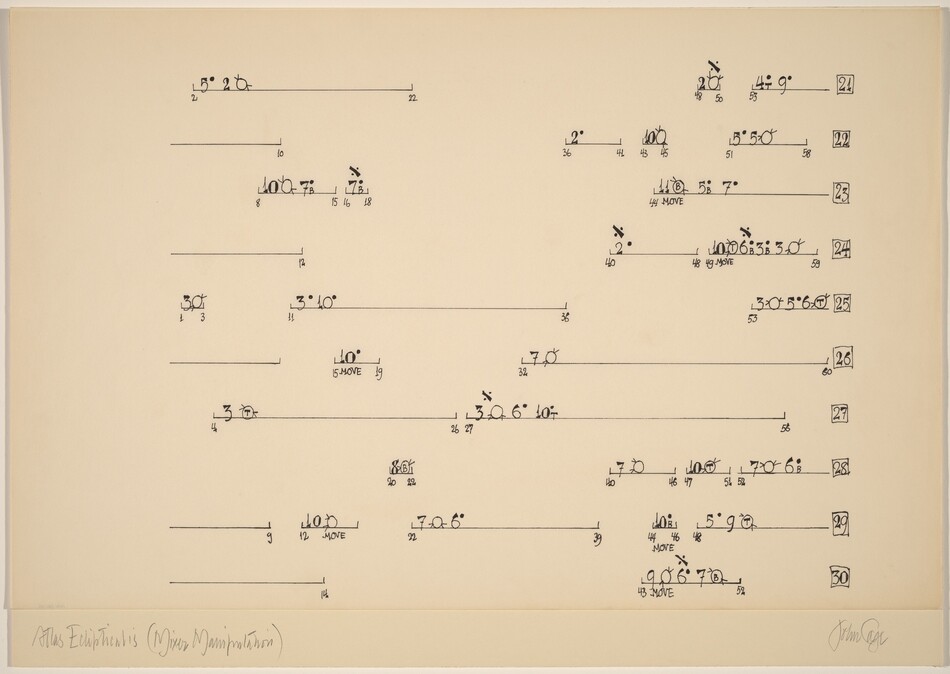 5 2 2 4T 9 21
2 22 48 50 53
2 10 5 5 22
10 36 41 43 45 51 58
10 7B 7B 11 B 5B 7 23
8 15 16 18 44 MOVE
2 10 T 6B 3B 3 24
12 40 48 49 MOVE 59
3 3 10 3 5 6 T 25
1 3 11 36 53
10 7 26
15 MOVE 19 32 60
3 T 3 6 10T 27
4 26 27 56
8 B 7 10 T 7 6B 28
20 22 40 46 47 51 52
10 7 6 10B 5 9 T 29
9 12 MOVE 22 39 44 46 48
MOVE
9 6 7 B 30
14 43 MOVE 52
Atlas Eclipticalis (Mixer Manipulation) John Cage